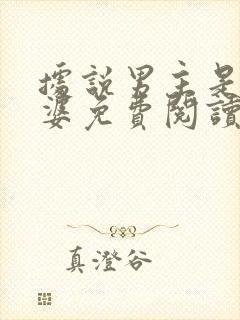 據說男主是
婆免費閱讀
真澄谷